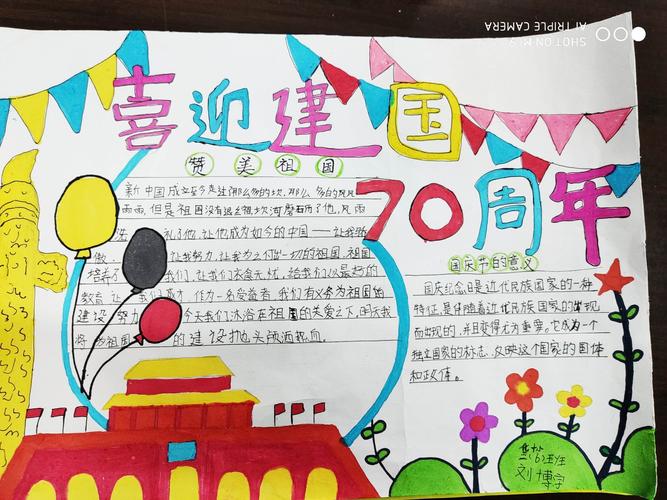 喜迎建国
70周年
赞美祖国
新中国成立至今走过那么多的坎,那么多的风风
雨雨,但是祖国没有
礼了他,让他成为如今的中国——让我骄
傲。让我努力、让我为之付出一切的祖国。祖国
培养了我们,让我们衣食无忧,给我们以最好的
教育,让我们努力,作为一名受益者,我们有义务为祖国的
建设努力 今天我们沐浴在祖国的关爱之下,明天我
将为祖国的建设抛头颅洒热血。
国庆节的意义
国庆纪念日是近代民族国家的一种
特征,是伴随着近代民族国家的出现
而出现的,并且变得尤为重要。它成为一个
独立国家的标志,反映这个国家的国体
和政体。
刘博宇
SHOT ON MI 9
AI TRIPLE CAMERA